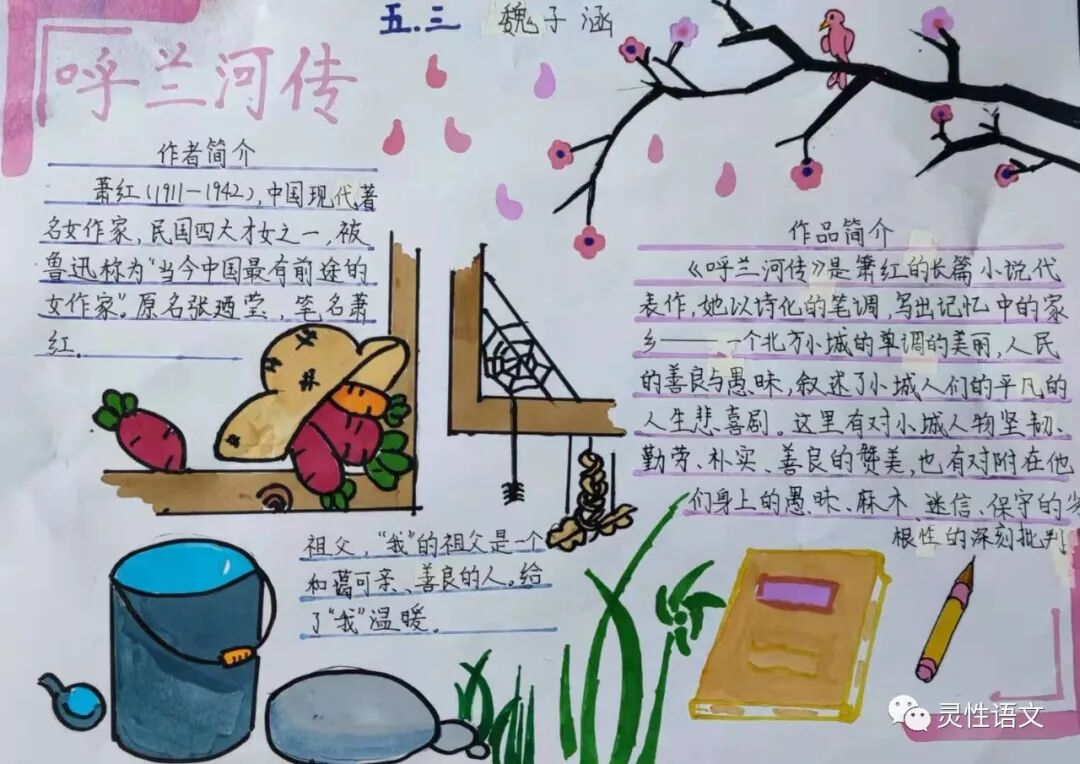 五.三 魏子涵
呼兰河传
作者简介
萧红(1911—1942),中国现代著
名女作家,民国四大才女之一,被
鲁迅称为“当今中国最有前途的
女作家”。原名张廼莹,笔名萧
红.
作品简介
《呼兰河传》是萧红的长篇小说代
表作,她以诗化的笔调,写出记忆中的家
乡——一个北方小城的单调的美丽,人民
的善良与愚昧,叙述了小城人们的平凡的
人生悲喜剧。这里有对小城人物坚韧、
勤劳、朴实、善良的赞美,也有对附在他
们身上的愚昧、麻木、迷信、保守的劣
根性的深刻批判
祖父,“我”的祖父是一个
和蔼可亲、善良的人。给
了“我”温暖。
灵性语文